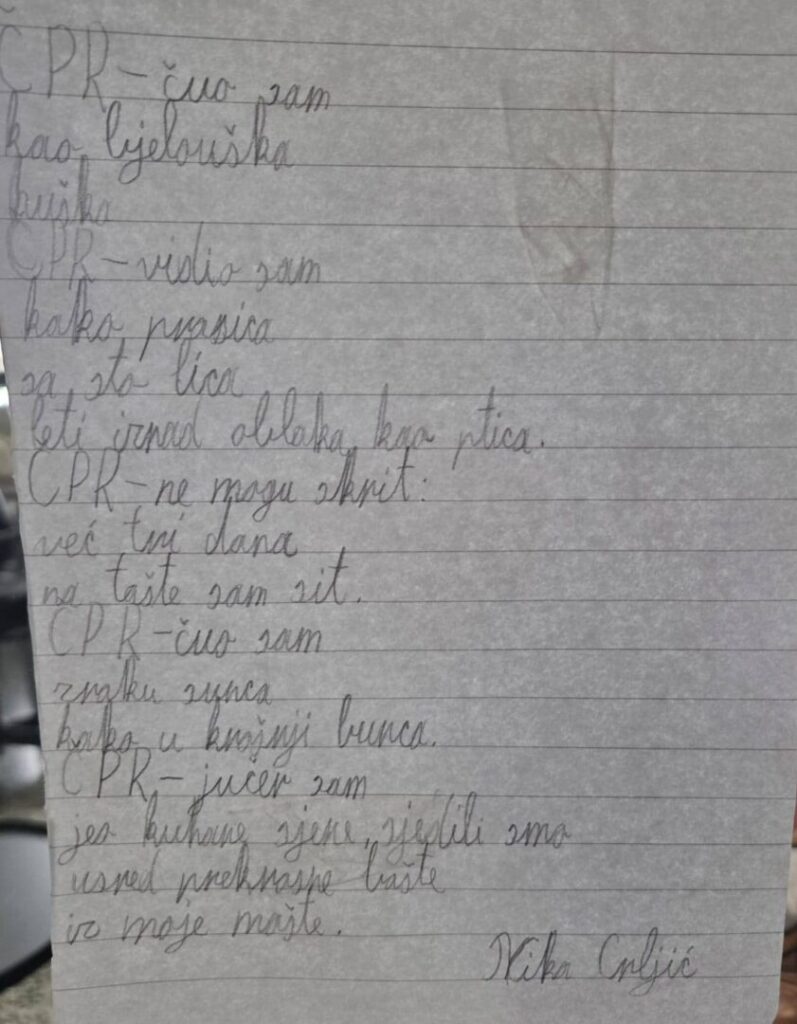 ČPR-čuo sam
kao bjelouška
kuška
ČPR-vidio sam
kako prasica
sa sto lica
leti iznad oblaka kao ptica.
ČPR-ne mogu skrit:
već tri dana
na tašte sam sit.
ČPR-čuo sam
zraku sunca
kako u krošnji bunca.
ČPR-jučer sam
jeo kuhane sjene, sjedili smo
usred prekrasne bašte
iz moje mašte.
Nika Crljić